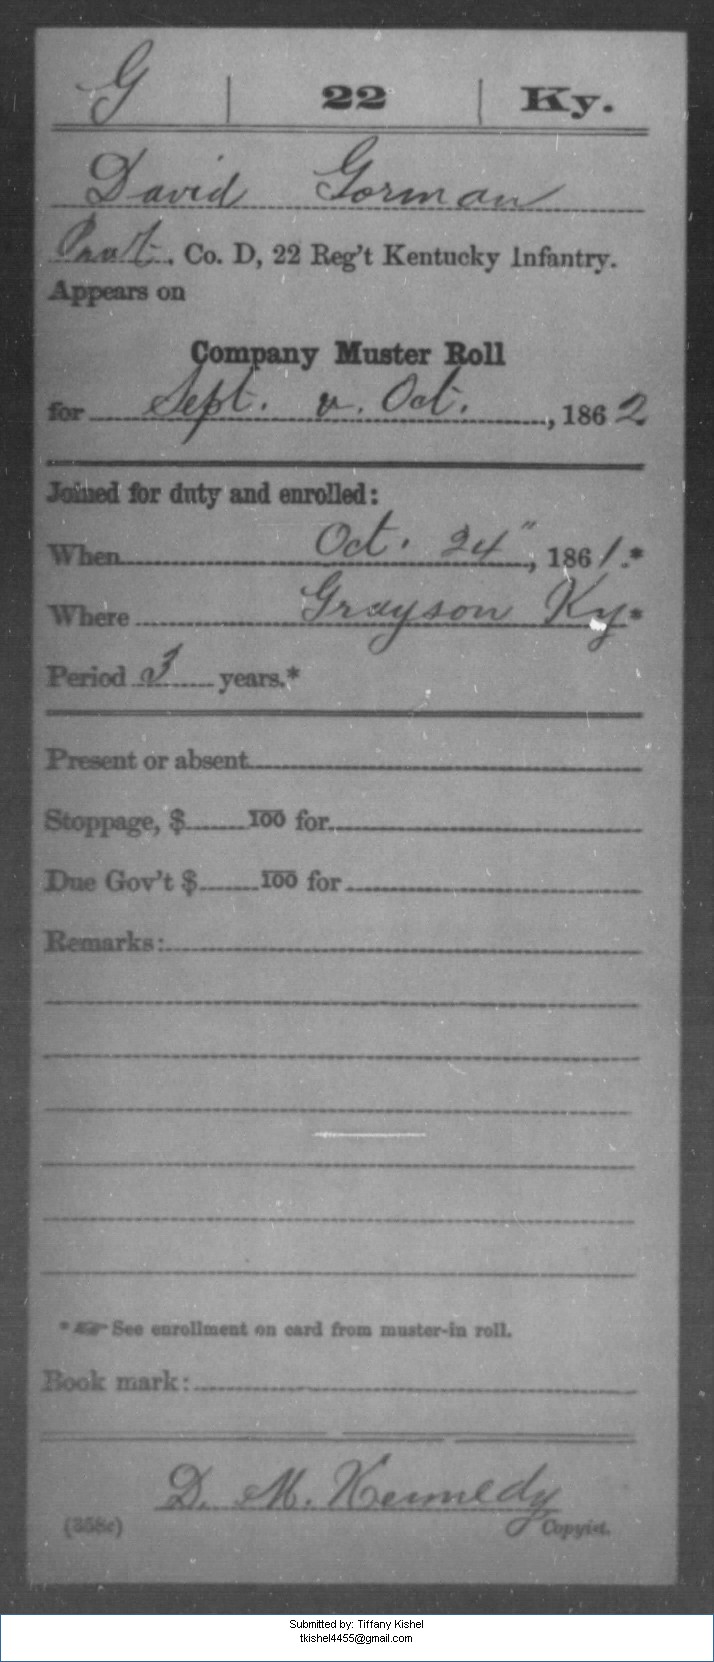 G | 22 | Ky.
David Gorman
Pvt., Co. D, 22 Reg't Kentucky Infantry.
Appears on
Company Muster Roll
for Sept. & Oct., 1862
Joined for duty and enrolled:
When Oct. 24", 1861.*
Where Grayson Ky*
Period 3 years.*
Present or absent
Stoppage, $ 100 for
Due Gov't $ 100 for
Remarks:
* ☞ See enrollment on card from muster-in roll.
Book mark:
D. M. Kennedy
(358c) Copyist.
Submitted by: Tiffany Kishel
tkishel4455@gmail.com